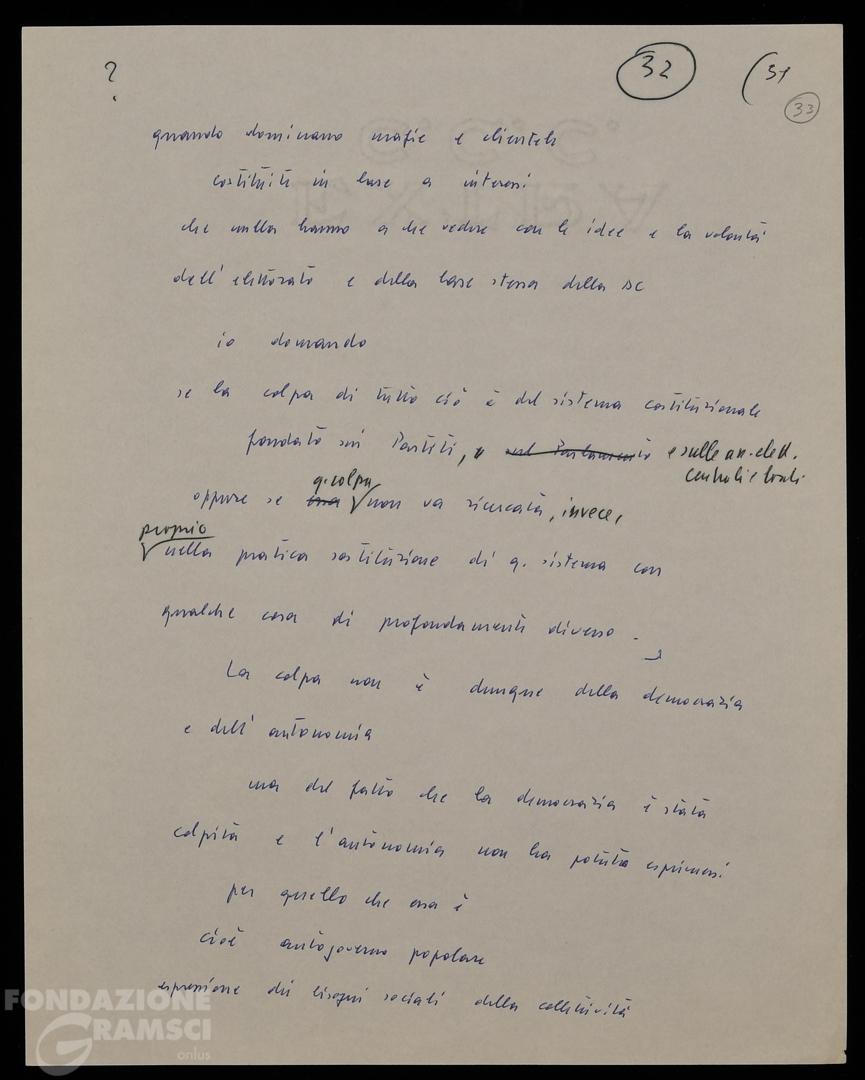 ?
32
(31
33
quando dominano mafie e clientele
costituite in base a interessi
che nulla hanno a che vedere con le idee e la volontà
dell'elettorato e della base stessa della DC
io domando
se la colpa di tutto ciò è del sistema costituzionale
fondato sui Partiti, e sul Parlamento e sulle ass. elett.
centrali e locali
q. colpa
oppure se essa non va ricercata, invece,
proprio
nella pratica sostituzione di q. sistema con
qualche cosa di profondamente diverso.
La colpa non è dunque della democrazia
e dell'autonomia
ma del fatto che la democrazia è stata
colpita e l'autonomia non ha potuto esprimersi
per quello che essa è
cioè autogoverno popolare
espressione dei bisogni sociali della collettività
FONDAZIONE
GRAMSCI
onlus